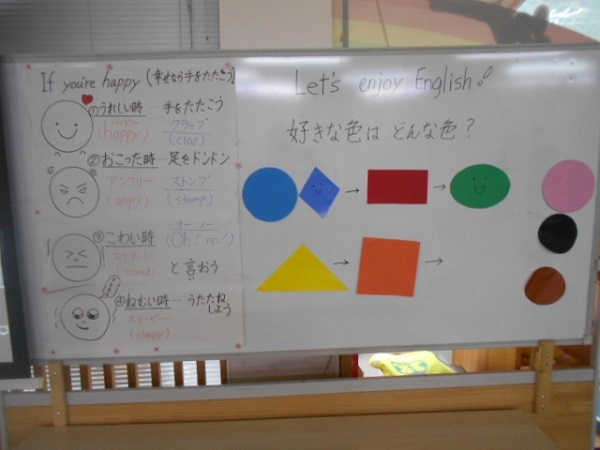 If you're happy (幸せなら手をたたこう)
①うれしい時…手をたたこう
ハッピー クラップ
(happy) (clap)
②おこった時…足をドンドン
アングリー ストンプ
(angry) (stomp)
③こわい時… オーノー
(Oh! no!)
スケアード と言おう
④ねむい時…うたたねしよう
スリーピー
(sleepy)
Let's enjoy English!
好きな色は どんな色?
→ →
→ →